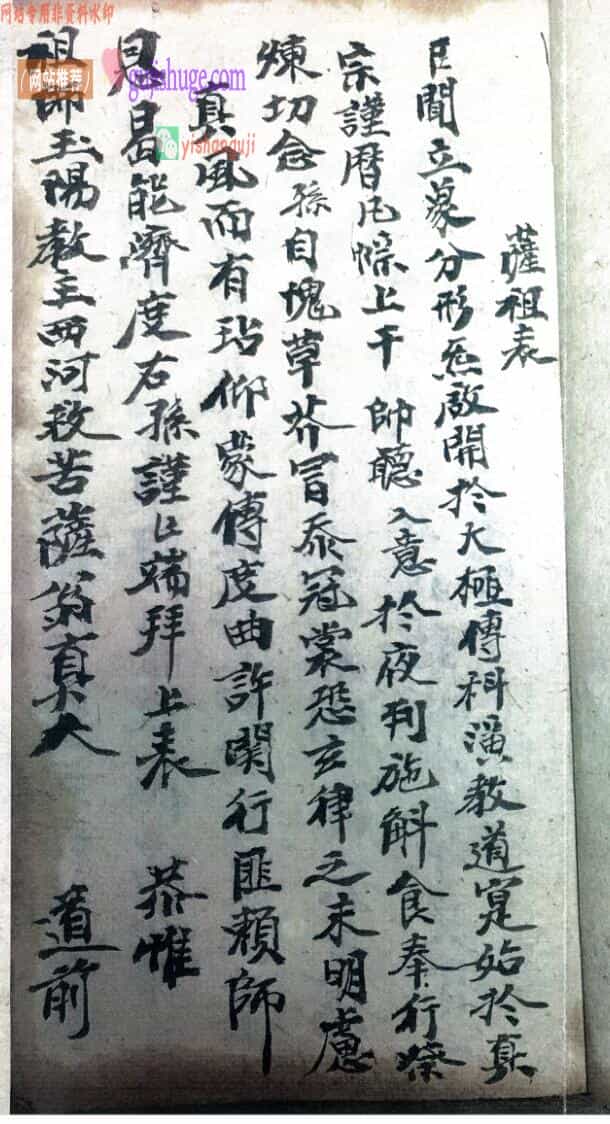 网站专用非资料水印
(网站推荐)
gujishuge.com
yishanguji
薩祖表
臣聞立象分形炁啟開於大極傳科演教道寔始於真
宗謹曆凡悰上干 帥聽入意於夜列施斛食奉行祭
煉切念孫自愧草芥冒忝冠裳恐玄律之未明慮
真風而有玷仰蒙傳度曲許関行匪賴師
恩曷能濟度右孫謹具端拜上表 恭惟
祖師玉陽教主西河救苦薩翁真人 道前